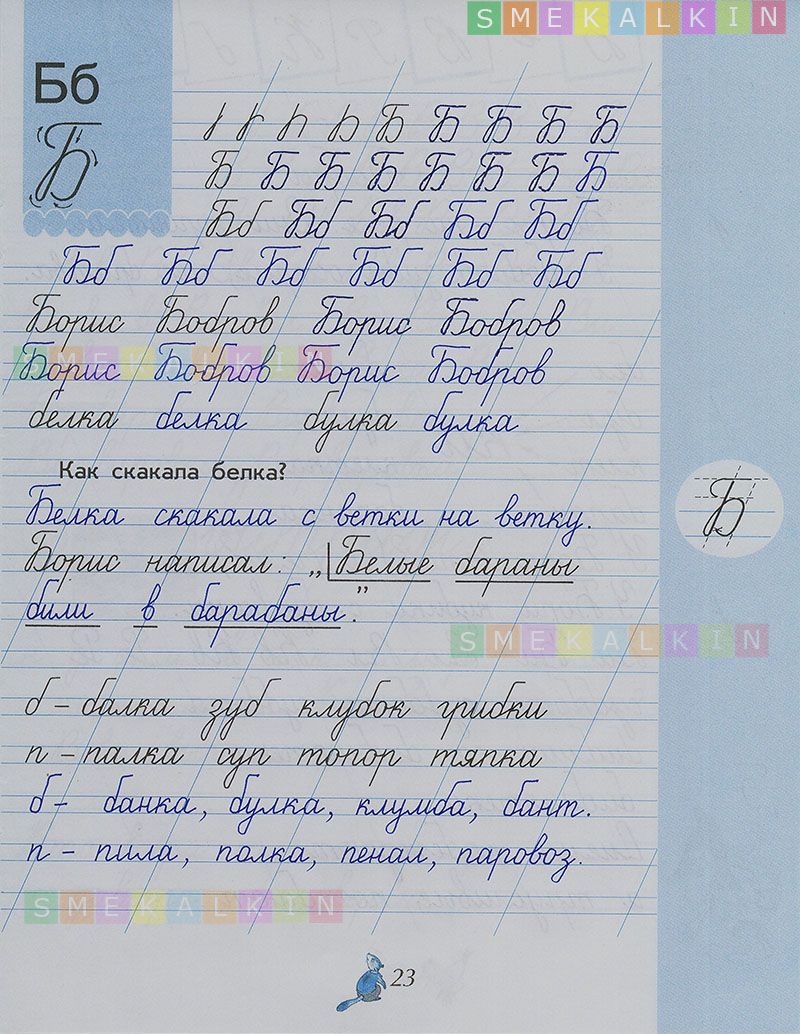 SMEKALKIN
Бб
Б
Б Б Б Б Б
Б Б Б Б Б Б Б Б
Бб Бб Бб Бб Бб
Бб Бб Бб Бб Бб Бб
Борис Бобров Борис Бобров
SMEKALKIN
Борис Бобров Борис Бобров
белка белка булка булка
Как скакала белка?
Белка скакала с ветки на ветку.
Б
Борис написал: „Белые бараны
били в барабаны”.
SMEKALKIN
б – балка зуб клубок грибки
п – палка суп топор тяпка
б – банка, булка, клумба, бант.
п – пила, полка, пенал, паровоз.
SMEKALKIN
23